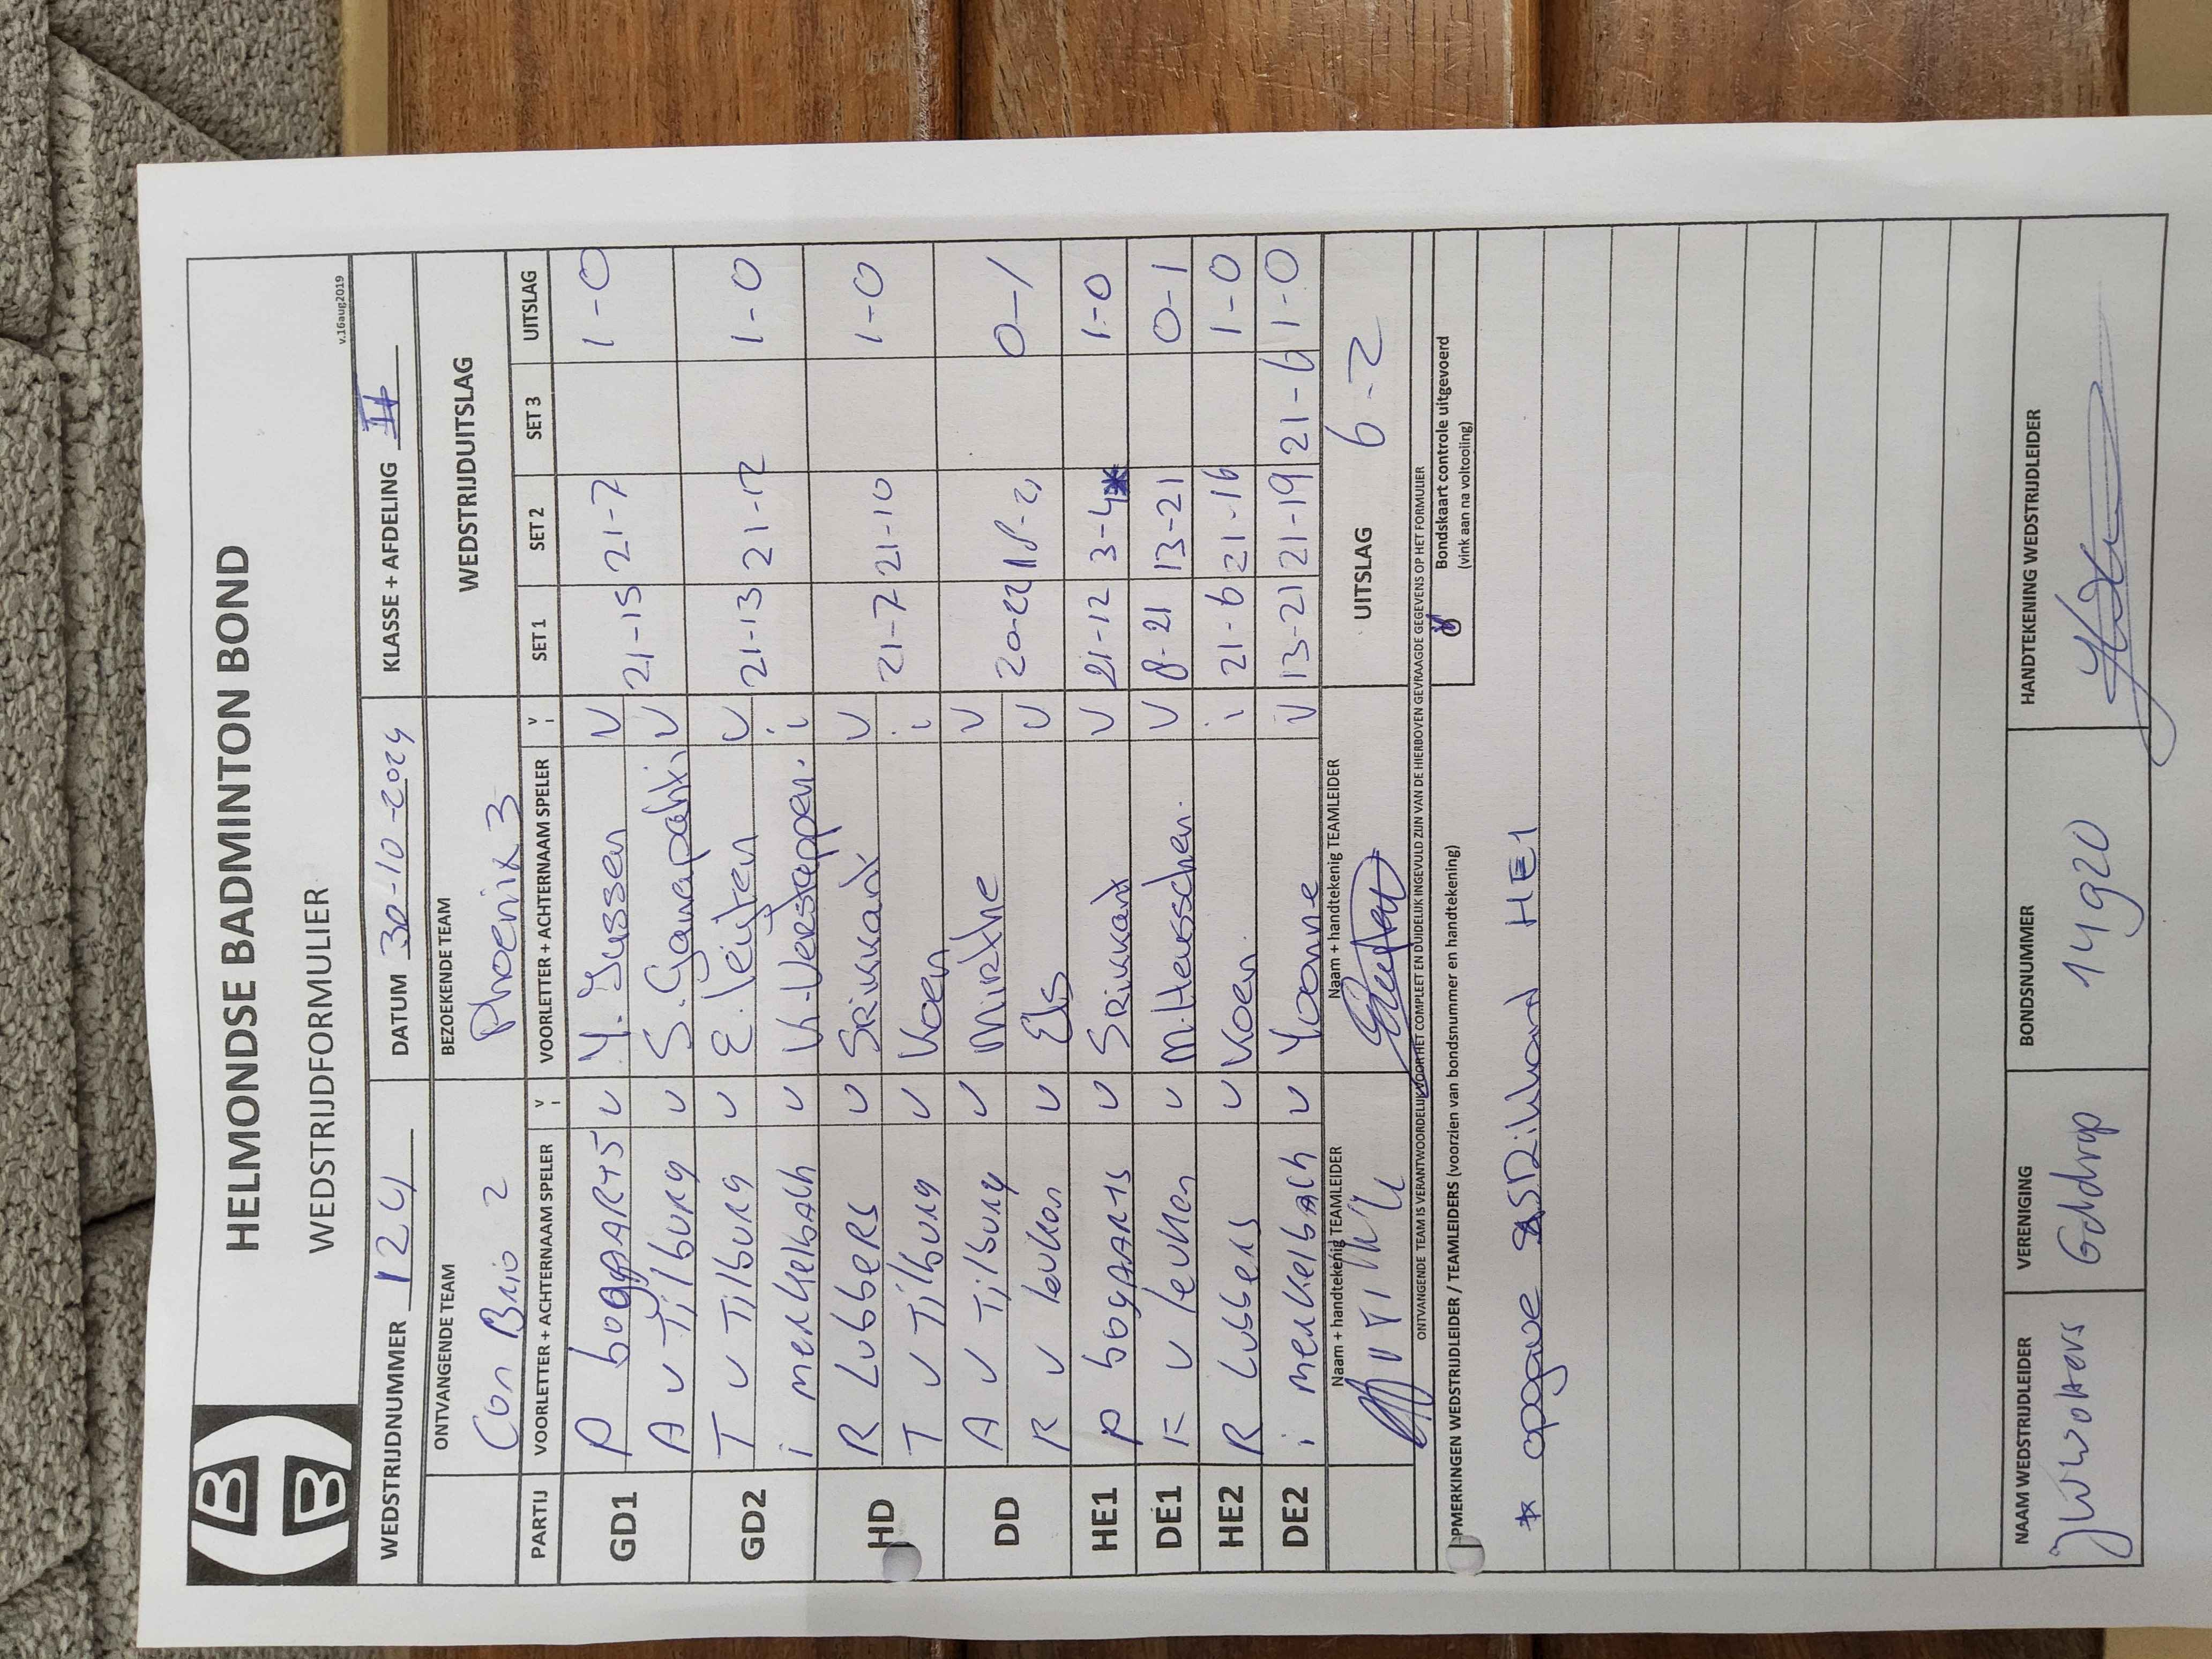 HELMONDSE BADMINTON BOND
WEDSTRIJDFORMULIER
v.16aug2019
WEDSTRIJDNUMMER 124 DATUM 30-10-2024 KLASSE + AFDELING II
ONTVANGENDE TEAM BEZOEKENDE TEAM WEDSTRIJDUITSLAG
Con Brio 2 Phoenix 3
PARTIJ VOORLETTER + ACHTERNAAM SPELER V I VOORLETTER + ACHTERNAAM SPELER V I SET 1 SET 2 SET 3 UITSLAG
GD1 P bogaarts v Y. Jussen v 21-15 21-7 1-0
A v Tilburg v S. Ganapathi v
GD2 T v Tilburg v E. Leijten v 21-13 21-12 1-0
i merkelbach v K. Verstappen. i
HD R Lubbers v Srikkant v 21-7 21-10 1-0
T v Tilburg v Koen i
DD A v Tilburg v Mirthe v 20-22 18-21 0-1
K v leuken v Els v
HE1 P bogaarts v Srikkant v 21-12 3-4* 1-0
DE1 K v leuken v M. Heusschen. v 8-21 13-21 0-1
HE2 R Lubbers v Koen. i 21-6 21-16 1-0
DE2 i merkelbach v Yvonne v 13-21 21-19 21-6 1-0
Naam + handtekenig TEAMLEIDER Naam + handtekenig TEAMLEIDER UITSLAG 6-2
ONTVANGENDE TEAM IS VERANTWOORDELIJK VOOR HET COMPLEET EN DUIDELIJK INGEVULD ZIJN VAN DE HIERBOVEN GEVRAAGDE GEGEVENS OP HET FORMULIER
OPMERKINGEN WEDSTRIJDLEIDER / TEAMLEIDERS (voorzien van bondsnummer en handtekening)
Bondskaart controle uitgevoerd
(vink aan na voltooiing)
* opgave SRikkand HE1
NAAM WEDSTRIJDLEIDER VERENIGING BONDSNUMMER HANDTEKENING WEDSTRIJDLEIDER
Geldrop 14920